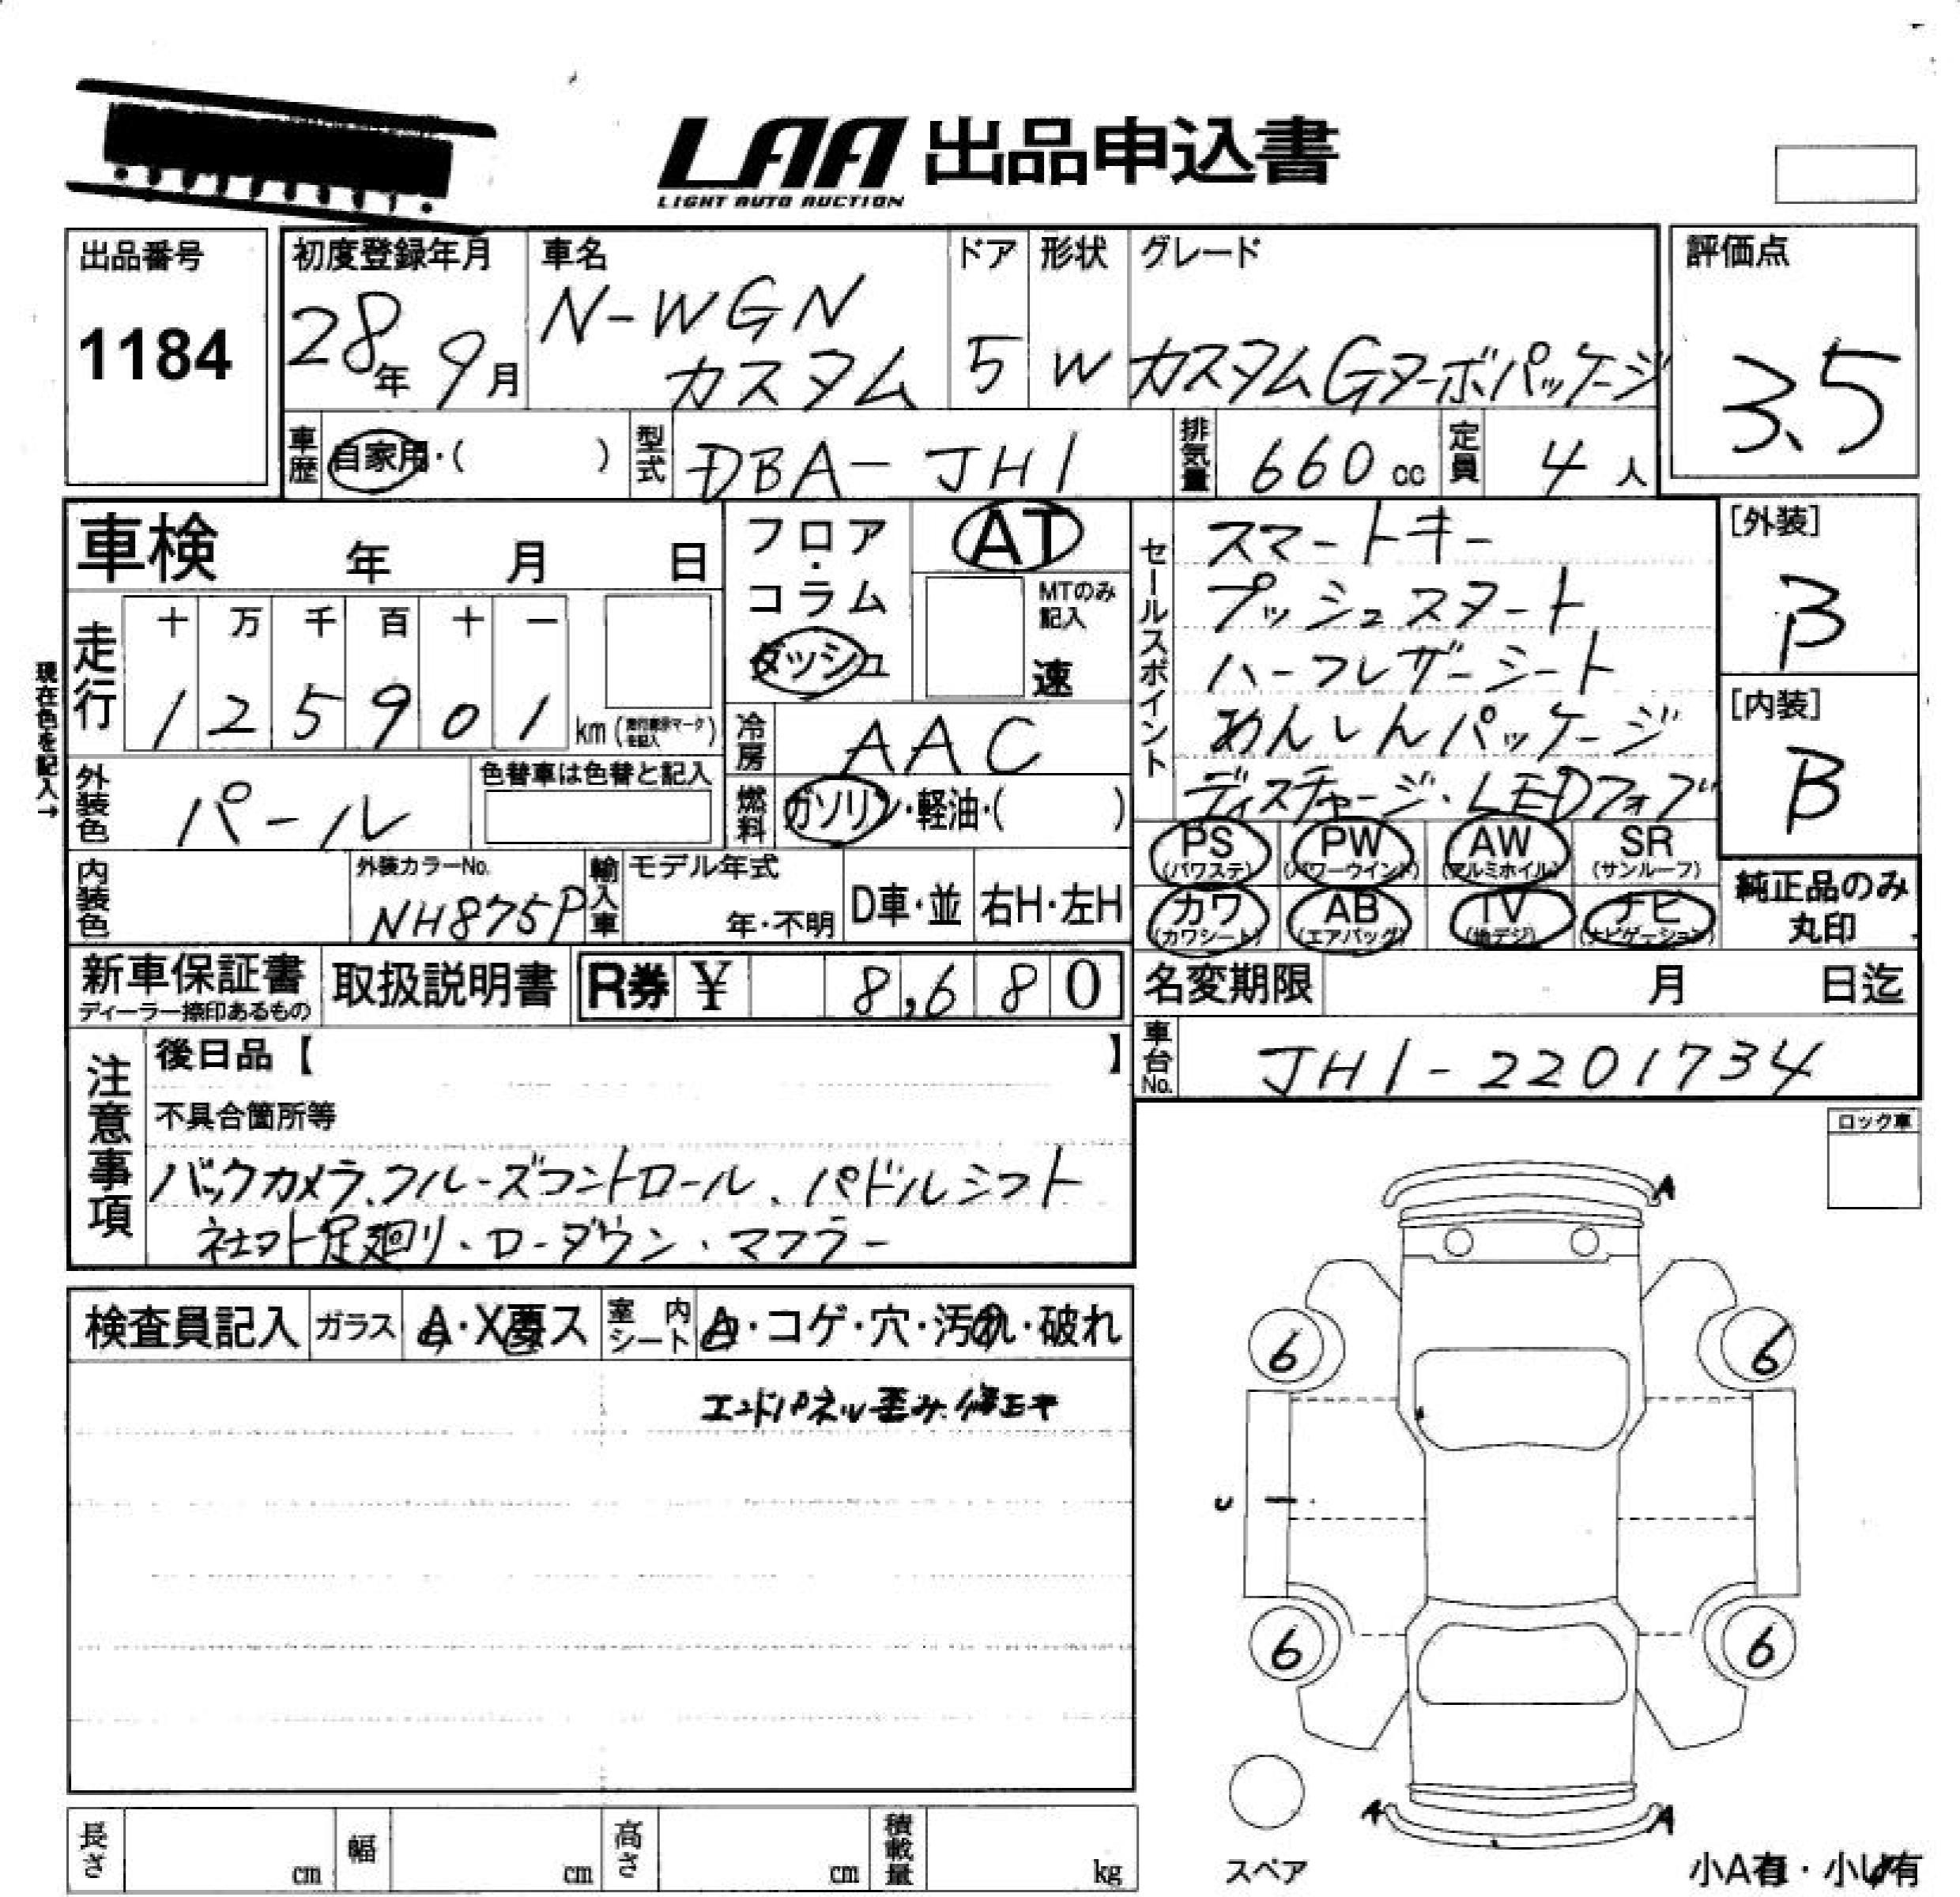 LAA 出品申込書
LIGHT AUTO AUCTION
出品番号
1184
初度登録年月
28年 9月
車名
N-WGN
カスタム
ドア
5
形状
W
グレード
カスタムGターボパッケージ
評価点
3.5
車歴
自家用・( )
型式
DBA-JH1
排気量
660 cc
定員
4 人
車検 年 月 日
フロア・
コラム
ダッシュ
AT
MTのみ
記入
速
セールスポイント
スマートキー
プッシュスタート
ハーフレザーシート
あんしんパッケージ
ディスチャージ・LEDフォグ
[外装]
B
[内装]
B
現在色を記入→
走行
十 万 千 百 十 一
1 2 5 9 0 1
km
冷房
AAC
外装色
パール
色替車は色替と記入
燃料
ガソリン・軽油・( )
PS AW PW SR
(パワステ) (パワーウインド) (アルミホイル) (サンルーフ)
カワ AB TV ナビ
(カワシート) (エアバッグ) (地デジ) (ナビゲーション)
純正品のみ
丸印
内装色
外装カラーNo.
NH875P
輸入車
モデル年式
年・不明
D車・並
右H・左H
新車保証書
ディーラー捺印あるもの
取扱説明書
R券 ¥ 8,680
名変期限 月 日迄
車台No.
JH1-2201734
注意事項
後日品【 】
不具合箇所等
バックカメラ、クルーズコントロール、パドルシフト
社外足廻り・ローダウン・マフラー
ロック車
検査員記入
ガラス
A・X要ス
室内シート
A・コゲ・穴・汚れ・破れ
エンドパネル歪み、修正キ
A
6 6
U
6 6
A A
スペア
小A有・小U有
長さ cm
幅 cm
高さ cm
積載量 kg